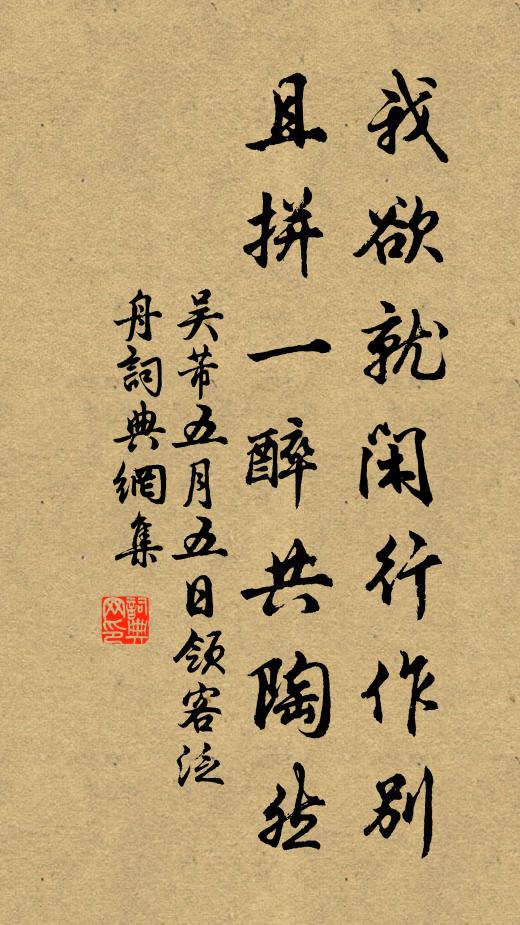 我欲就闲行作别
且拼一醉共陶然
吴芾五月五日领客泛
舟詞典網集
詞典
网印